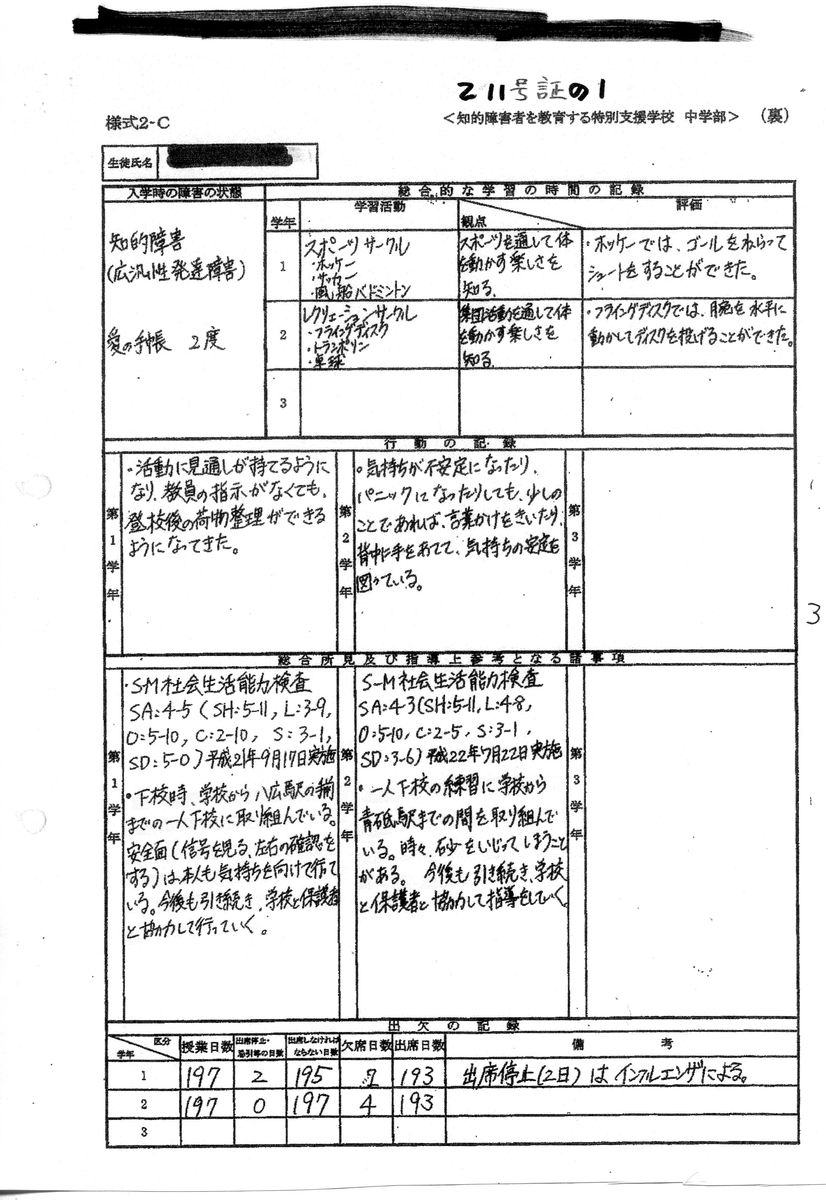 乙11号証の1
様式2-C
＜知的障害者を教育する特別支援学校 中学部＞ （裏）
生徒氏名
入学時の障害の状態
総合的な学習の時間の記録
学年 学習活動 観点 評価
知的障害
(広汎性発達障害)
愛の手帳 2度
1
スポーツサークル
・ホッケー
・サッカー
・風船バドミントン
スポーツを通して体
を動かす楽しさを
知る.
・ホッケーでは、ゴールをねらって
シュートをすることができた。
2
レクリェーションサークル
・フライングディスク
・トランポリン
・卓球
集団活動を通して体
を動かす楽しさを
知る.
・フライングディスクでは、腕を水平に
動かしてディスクを投げることができた。
3
行動の記録
第1学年
・活動に見通しが持てるように
なり、教員の指示がなくても、
登校後の荷物整理ができる
ようになってきた。
第2学年
・気持ちが不安定になったり、
パニックになったりしても、少しの
ことであれば、言葉かけをきいたり、
背中に手をあてて、気持ちの安定を
図っている。
第3学年
3
総合所見及び指導上参考となる諸事項
第1学年
・S-M社会生活能力検査
SA:4-5 (SH:5-11, L:3-9,
O:5-10, C:2-10, S:3-1,
SD:5-0) 平成21年9月17日実施
・下校時、学校から八広駅の
までの一人下校に取り組んでいる。
安全面(信号を見る、左右の確認を
する)は、本人も気持ちを向けて行って
いる。今後も引き続き、学校と保護者
と協力して行っていく。
第2学年
S-M社会生活能力検査
SA:4-3(SH:5-11, L:4-8,
O:5-10, C:2-5, S:3-1,
SD:3-6) 平成22年7月22日実施
・一人下校の練習に学校から
青砥駅までの間を取り組んで
いる。時々、砂をいじってしまうこと
がある。 今後も引き続き、学校
と保護者と協力して指導をしていく。
第3学年
出欠の記録
区分 学年 授業日数 出席停止・忌引等の日数 出席しなければならない日数 欠席日数 出席日数 備考
1 197 2 195 193 出席停止(2日)はインフルエンザによる。
2 197 0 197 4 193
3